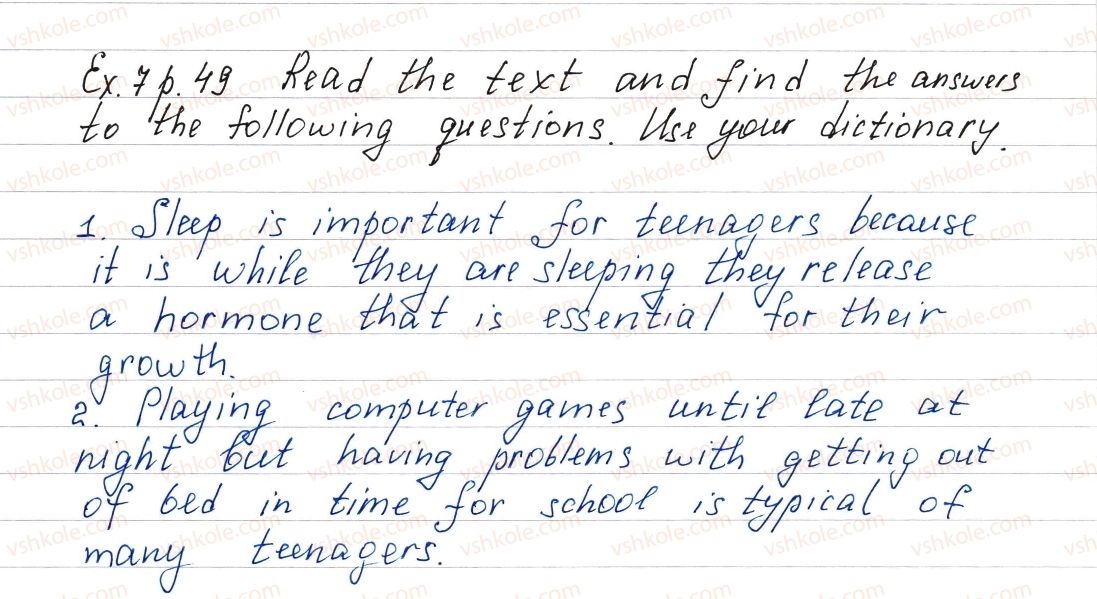 Ex. 7 p. 49 Read the text and find the answers
to the following questions. Use your dictionary.
1. Sleep is important for teenagers because
it is while they are sleeping they release
a hormone that is essential for their
growth.
2. Playing computer games until late at
night but having problems with getting out
of bed in time for school is typical of
many teenagers.